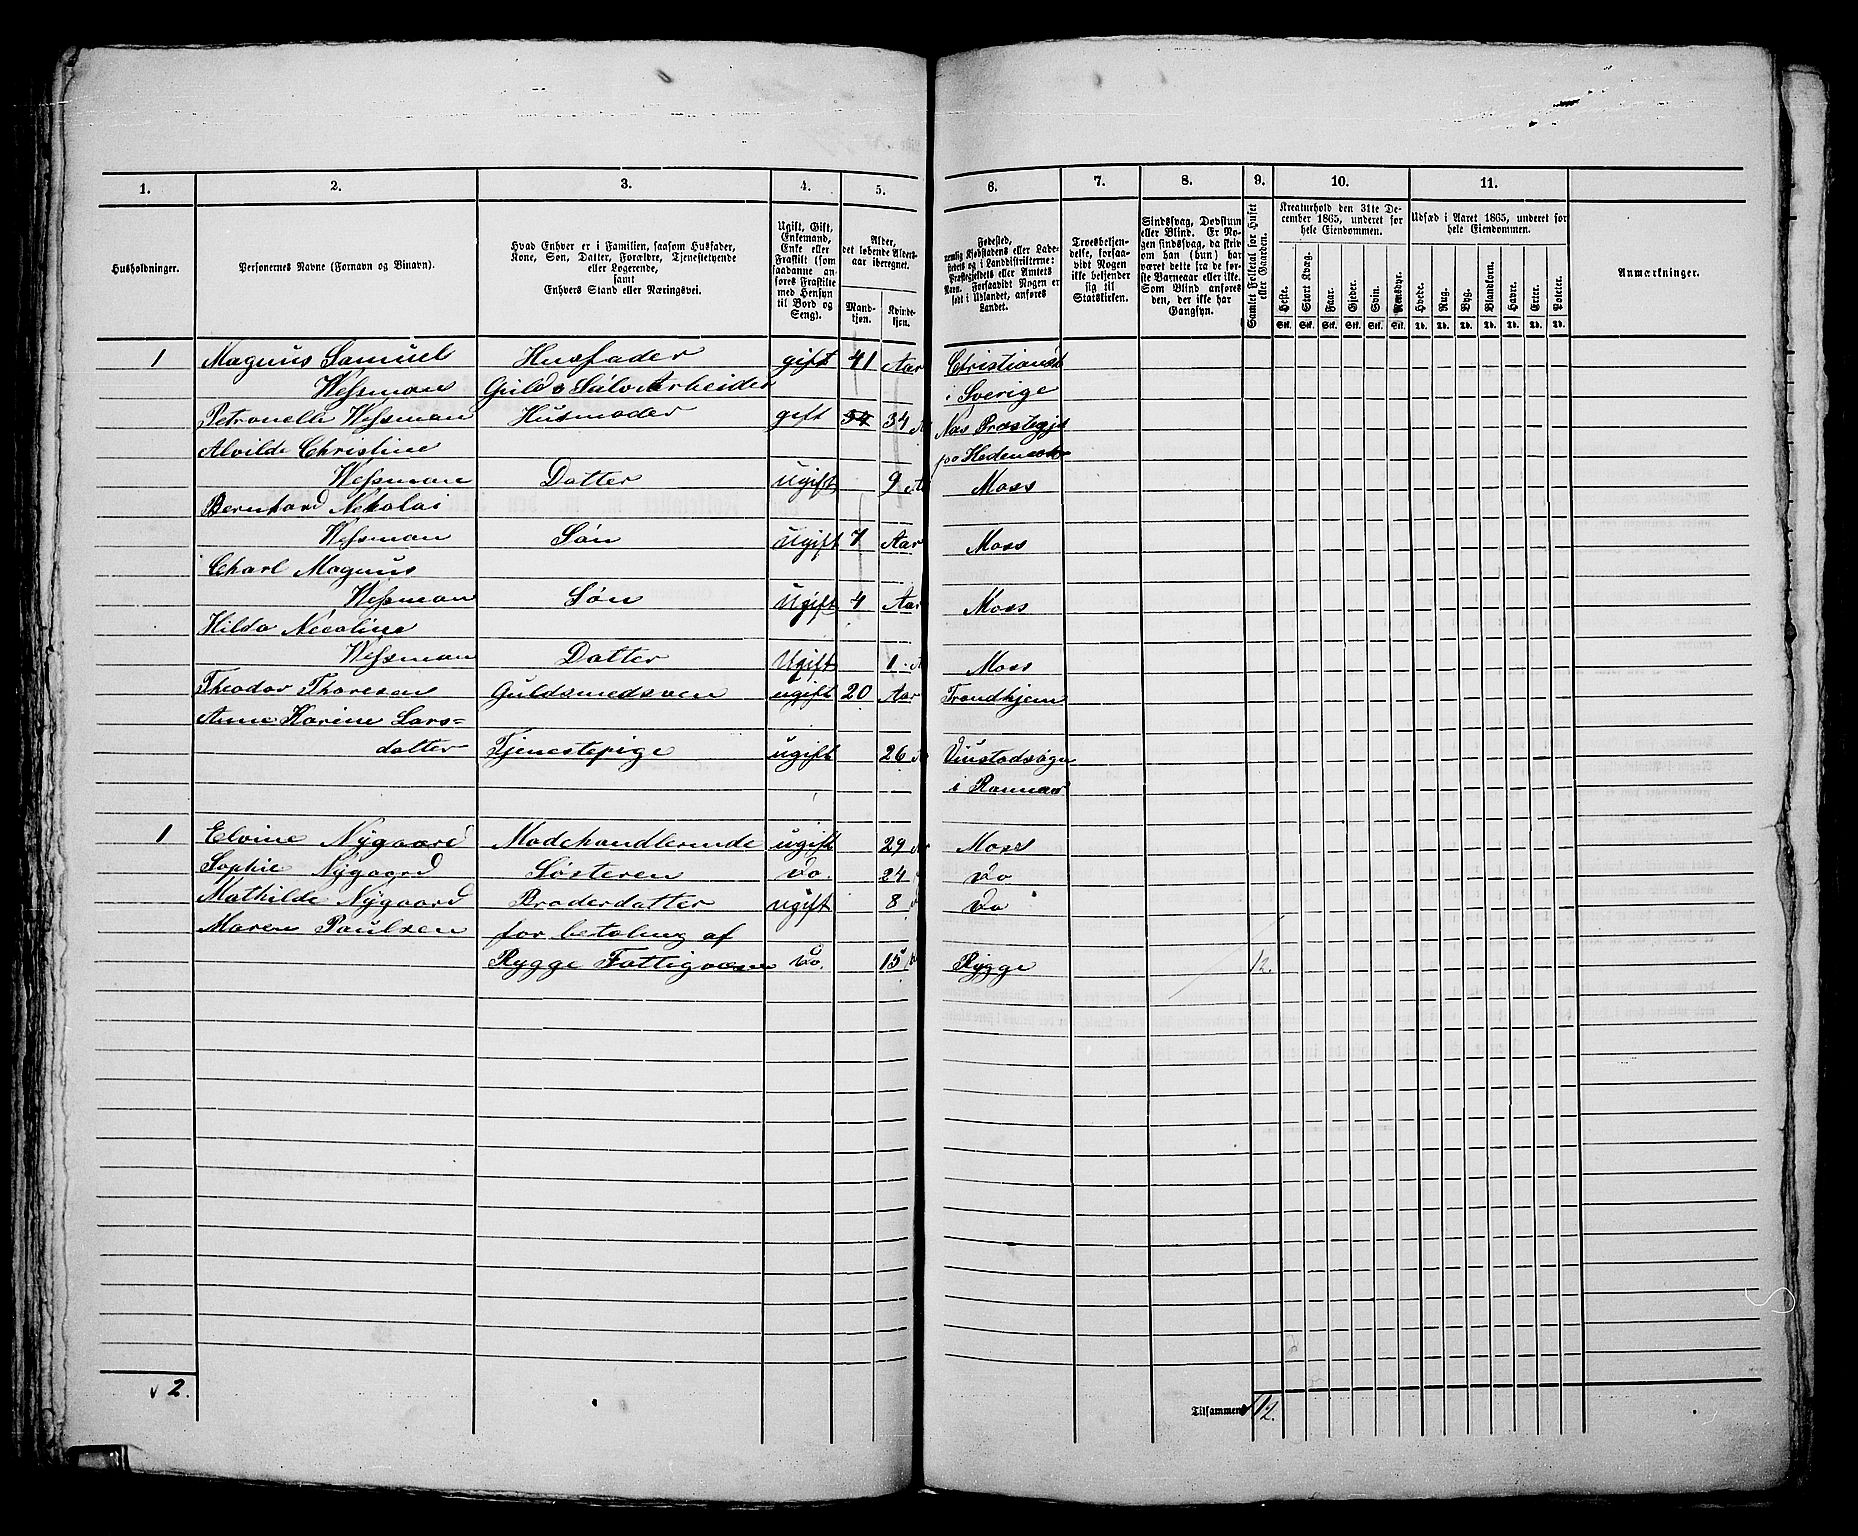 1. 2. 3. 4. 5. 6. 7. 8. 9. 10. 11.
Husholdninger.
Personernes Navne (Fornavn og Binavn).
Hvad Enhver er i Familien, saasom Husfader,
Kone, Søn, Datter, Forældre, Tjenestetyende
eller Logerende,
samt
Enhvers Stand eller Næringsvei.
Ugift, Gift,
Enkemand,
Enke eller
Fraskilt (som
saadanne an-
føres Fraskilte
med Hensyn
til Bord og
Seng).
Alder,
det løbende Alders-
aar iberegnet.
Mand-
kjøn.
Kvinde-
kjøn.
Fødested,
nemlig Kjøbstadens eller Lade-
stedets og i Landdistrikterne:
Præstegjeldets eller Amtets
Navn. Forsaavidt Nogen er
født i Udlandet, anføres
Landet.
Troesbekjen-
delse, forsaa-
vidt Nogen
ikke bekjender
sig til
Statskirken.
Sindssvag, Døvstum
eller Blind. Er No-
gen sindssvag, da skriv
om han (hun) har
været dette fra de før-
ste Barneaar eller ikke.
Som Blind anføres
den, der ikke har
Gangsyn.
Samlet Folketal for Huset
eller Gaarden.
Kreaturhold den 31te De-
cember 1865, underet for
hele Eiendommen.
Heste. Stort Kvæg. Faar. Gjeder. Svin. Rensdyr.
Stk. Stk. Stk. Stk. Stk. Stk.
Udsæd i Aaret 1865, underet for
hele Eiendommen.
Hvede. Rug. Byg. Blandkorn. Havre. Erter. Poteter.
Td. Td. Td. Td. Td. Td. Td.
Anmærkninger.
1 Magnus Samuel Husfader gift 41 Aar Christianst
Wessman Guld o Sølv Arbeider i Sverige
Petronelle Wessman Husmoder gift 34 34 Nas Præstegje
Alvilde Christine paa Hedemark
Wessman Datter Ugift 9 Moss
Bernhard Nekolai
Wessman Søn Ugift 7 Aar Moss
Charl Magnus
Wessman Søn Ugift 4 Aar Moss
Hilda Nicoline
Wessman Datter Ugift 1 Moss
Theodor Thoresen Guldsmedsven ugift 20 Aar Trondhjem
Anne Karine Lars=
datter Tjenestepige ugift 26
1 Elvine Nygaard Modehandlerinde ugift 29 Moss
Sophie Nygaard Søsteren Do. 24 Do
Mathilde Nygaard Broderdatter ugift 8 Do
Maren Paulsen for betaling af
Rygge Fattigvæsen Do. 15 Rygge 12.
2.
Tilsammen 12.